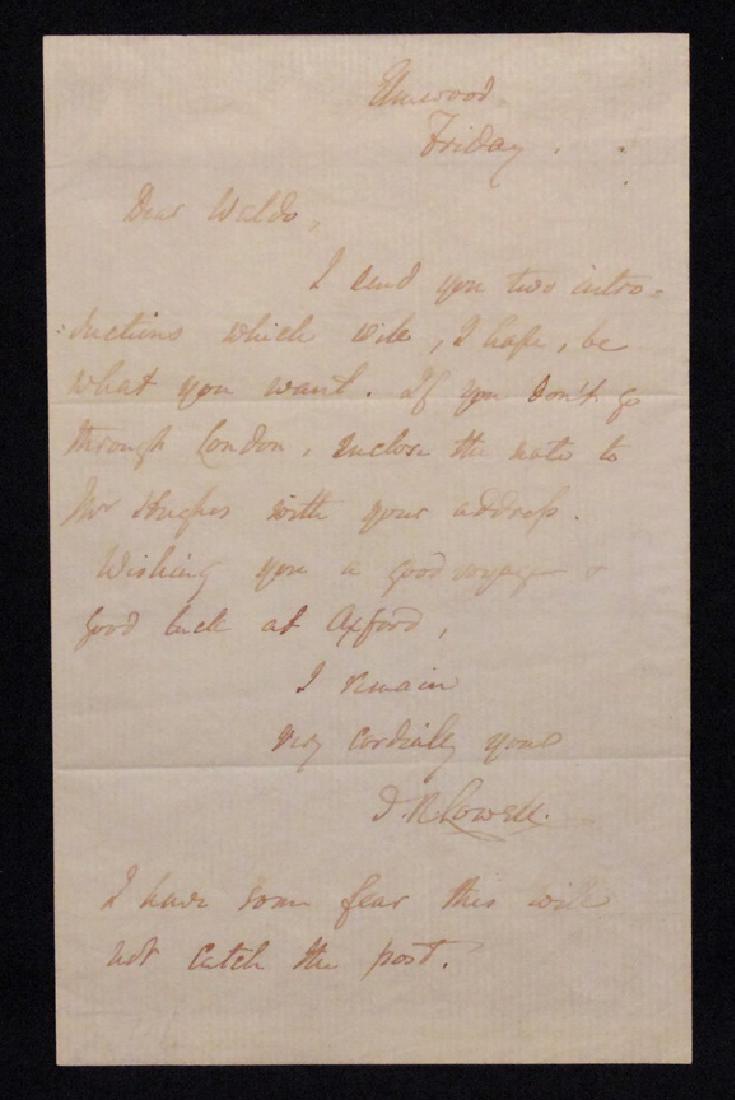 Elmwood,
Friday.
Dear Waldo,
I send you two intro-
ductions which will, I hope, be
what you want. If you don't go
through London, inclose the note to
Mr Hughes with your address.
Wishing you a good voyage &
good luck at Oxford,
I remain
very cordially yours
J. R. Lowell.
I have some fear this will
not catch the post.